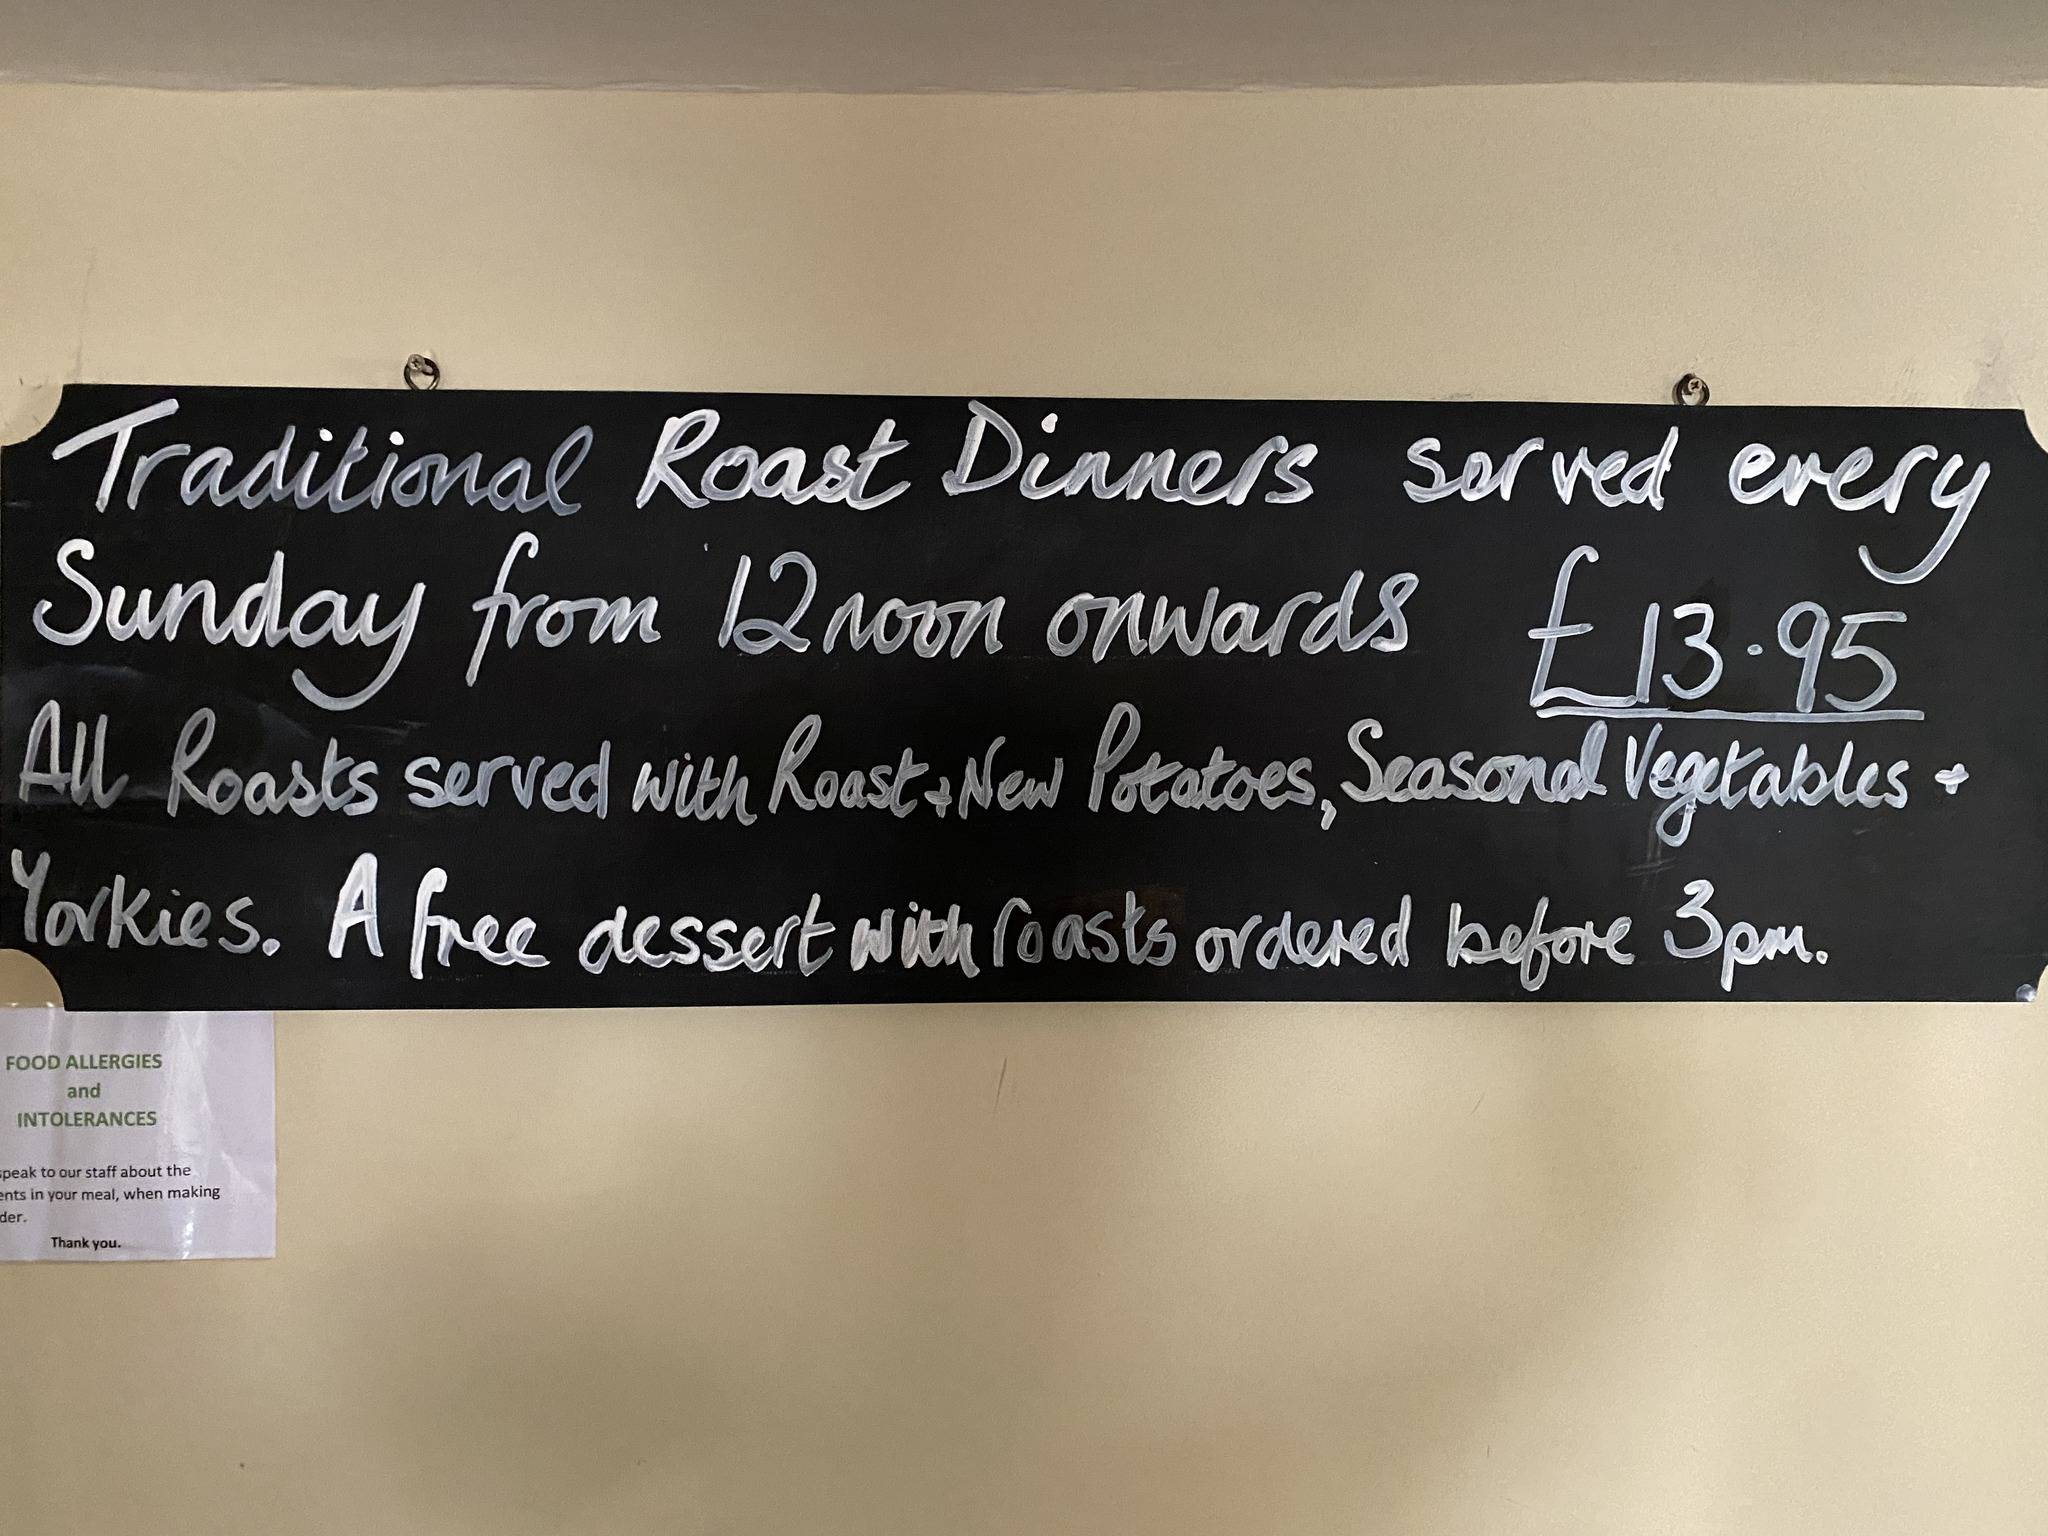 Traditional Roast Dinners served every
Sunday from 12noon onwards £13.95
All Roasts served with Roast + New Potatoes, Seasonal Vegetables +
Yorkies. A free dessert with roasts ordered before 3pm.
FOOD ALLERGIES
and
INTOLERANCES
speak to our staff about the
in your meal, when making
Thank you.